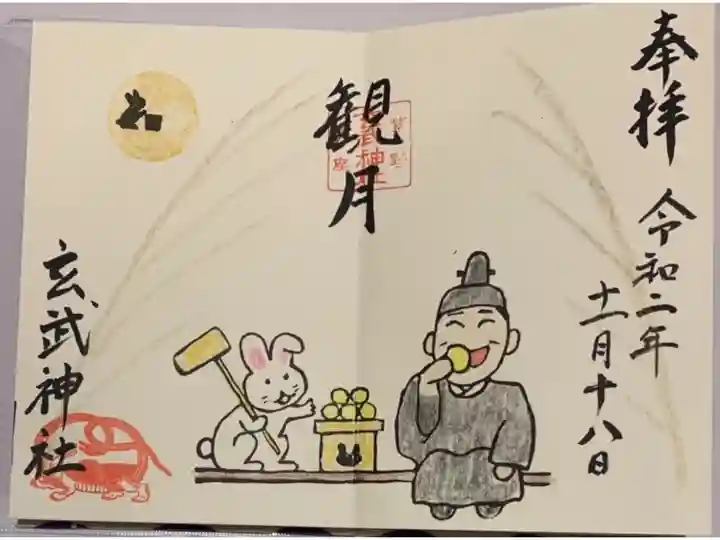 奉拝
令和二年
十一月十八日
観月
玄武神社